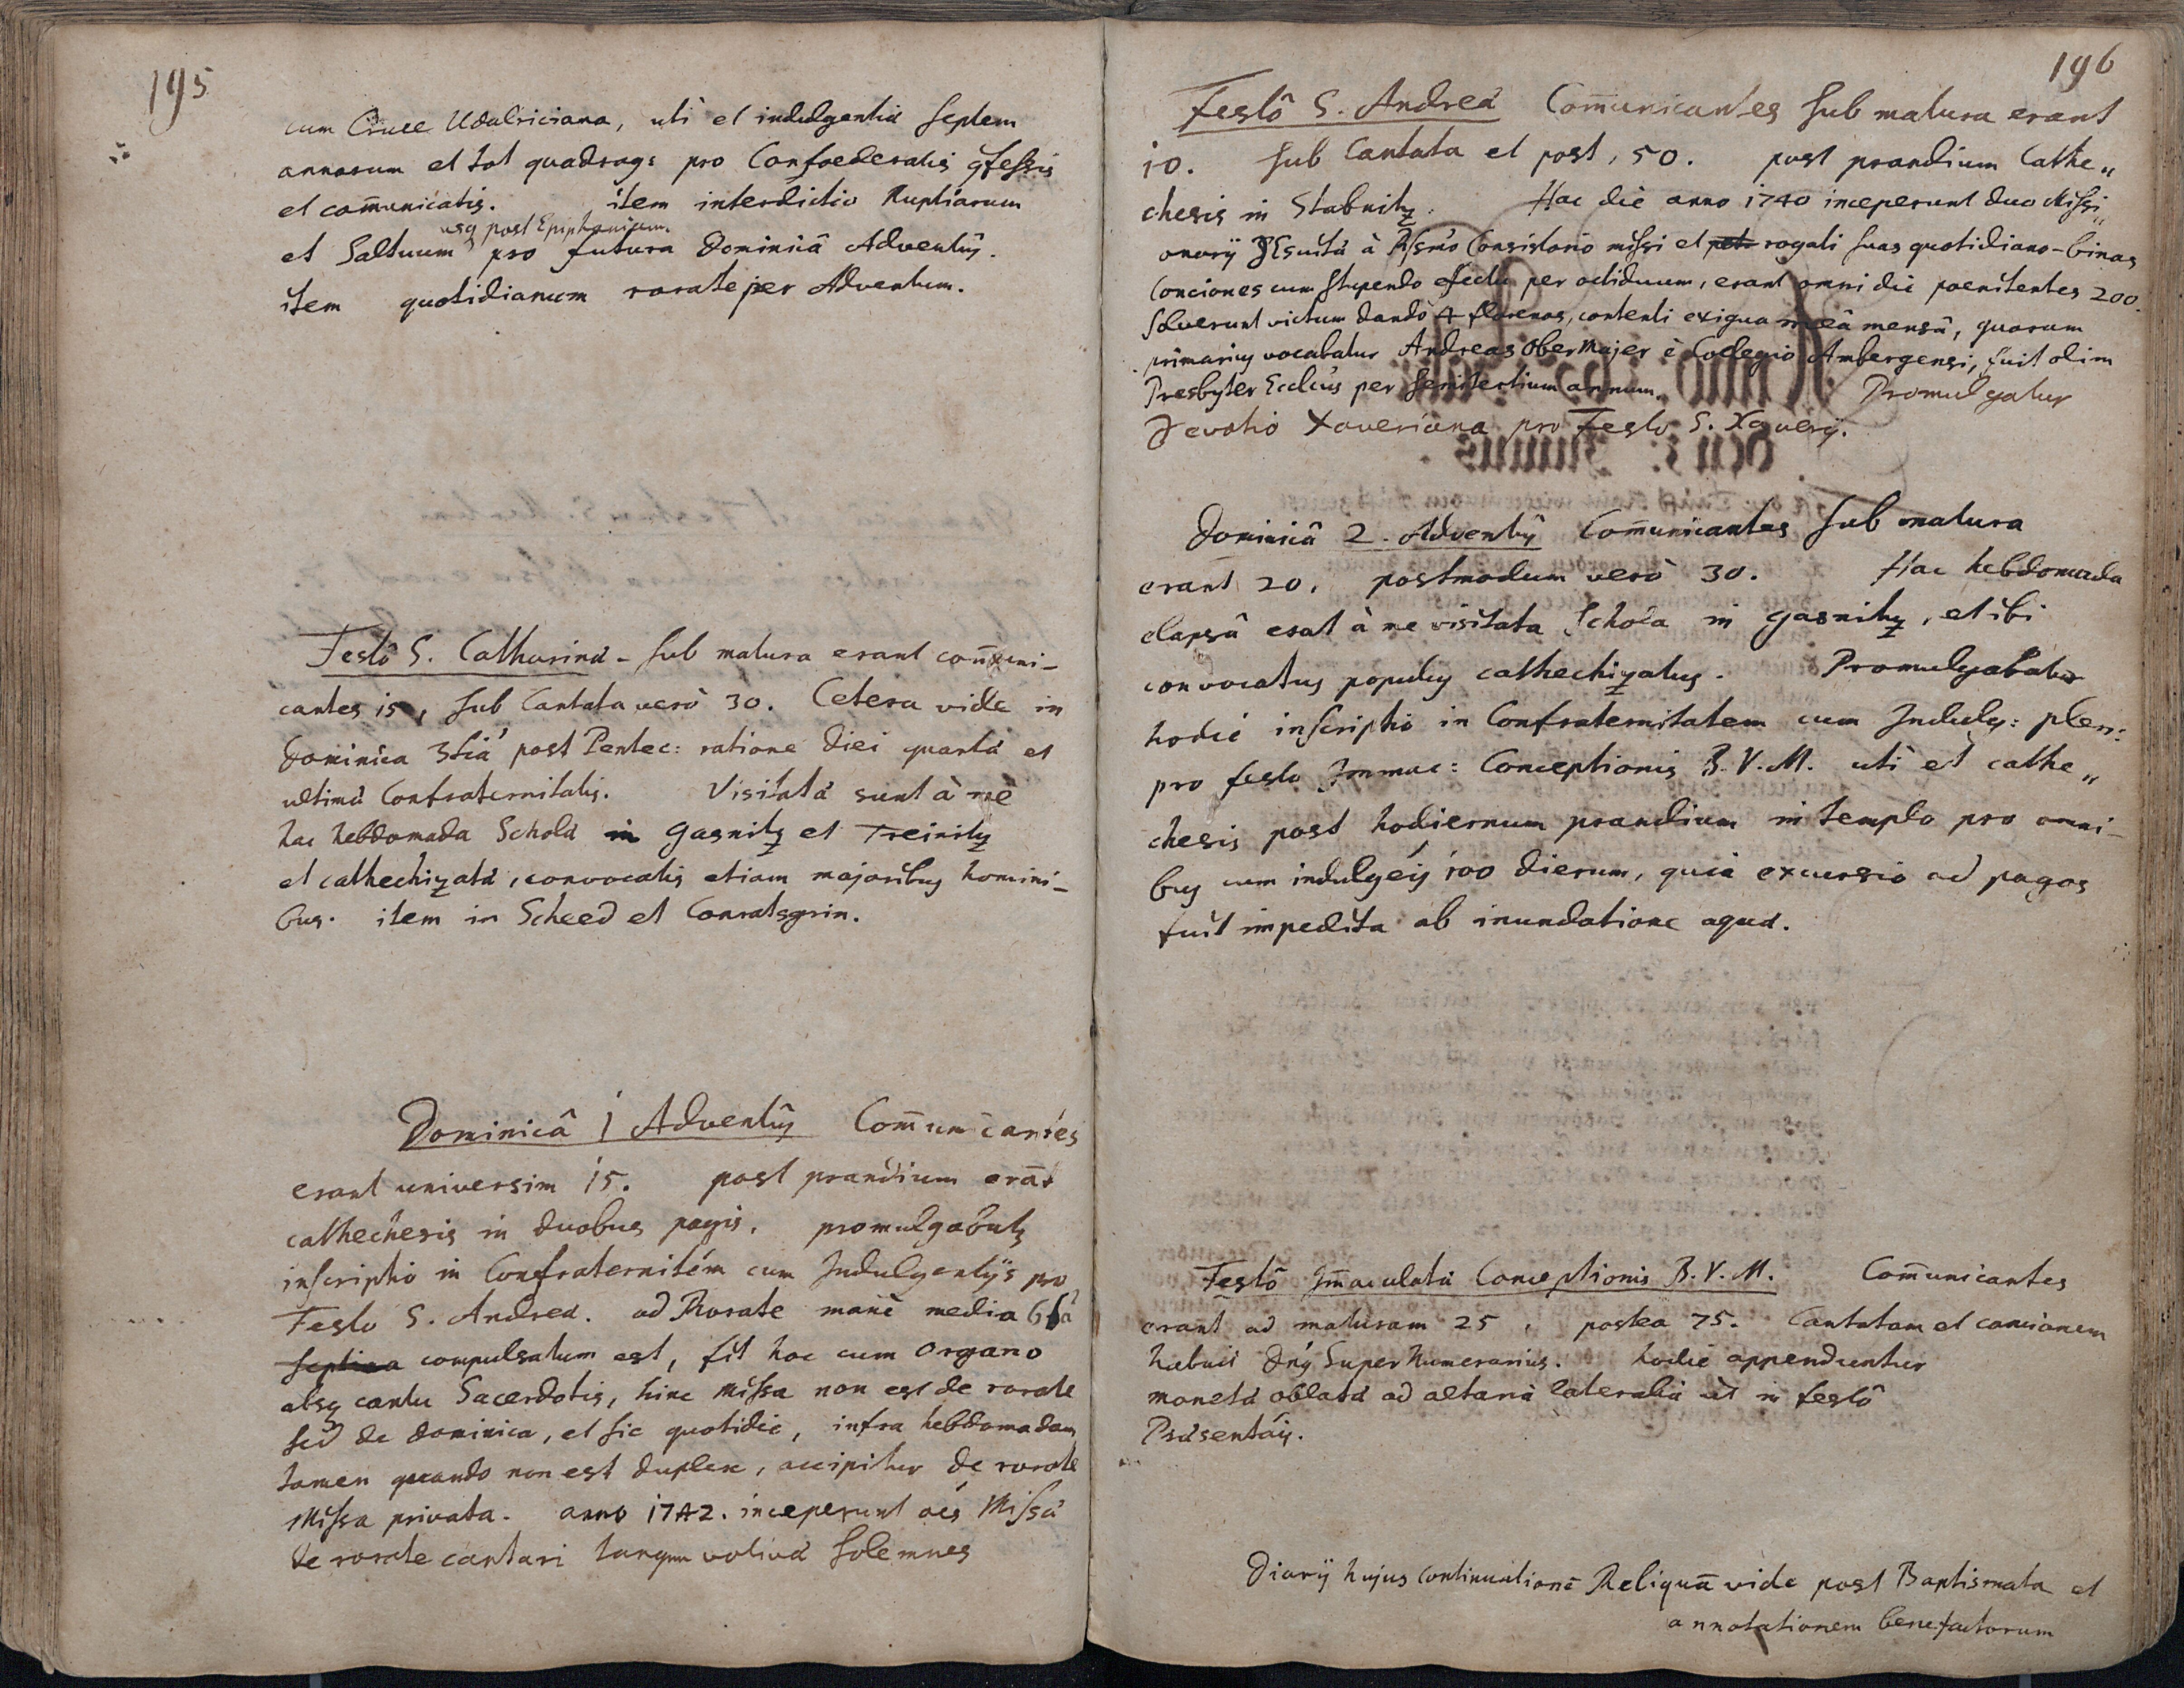 195
cum Cruce Udalriciana, uti et indulgentiæ septem
annorum et tot quadrag: pro Confoederatis qfessis
et com̄unicatis. item interdictio Nuptiarum
usq post Epiphaniam.
et Saltuum pro futura Dominicâ Adventûs.
item quotidianum rorate per Adventum.
Festô S. Catharinæ - sub matura erant com̄uni-
cantes 15, sub Cantata verò 30. Cetera vide in
Dominica 3tiâ post Pentec: ratione Diei quartæ et
ultimæ Confraternitatis. Visitatæ sunt à mè
hac hebdomada Scholæ in Gasnitz et Treinitz
et cathechizatæ, convocatis etiam majoribus homini-
bus. item in Scheed et Conratsgrin.
Dominicâ 1 Adventûs Com̄unicantes
erant universim 15. post prandium erāt
cathechesis in duobus pagis. promulgabatr
inscriptio in Confraternitém cum Indulgentijs pro
Festo S. Andreæ. ad Rorate manè media 6tâ
septima compulsatum est, fit hoc cum organo
absq cantu Sacerdotis, hinc Missa non est de rorate
sed de dominica, et sic quotidie, infra hebdomadam
tamen quando non est duplex, accipitur de rorate
Missa privata. anno 1742. inceperunt oēs Missæ
de rorate cantari tanqm votivæ solemnes
196
Festô S. Andreæ Com̄unicantes sub matura erant
10. sub Cantata et post, 50. post prandium Cathe„
chesis in Stabnitz. Hac die anno 1740 inceperunt duo Missi„
onarij JEsuitæ à Rssmo Consistorio missi et rogati suas quotidiano-binas
Conciones cum stupendo efectu per octiduum, erant omni die poenitentes 200
solverunt victum dando 4 florenos, contenti exigua meâ mensâ, quorum
primarius vocabatur Andreas Obermajer è Collegio Ambergensi, fuit olim
Presbyter Ecclius per semitertium annum. Promulgatur
Devotio Xaveriana pro Festo S. Xaverij.
Dominicâ 2. Adventûs Com̄unicantes sub matura
erant 20. postmodum verò 30. Hac hebdomada
elapsâ erat à me visitata Schola in Gasnitz, et ibi
convocatus populus cathechizatus. Promulgabatur
hodie inscriptio in Confraternitatem cum Indulg: plen:
pro festo Immac: Conceptionis B. V. M. uti et cathe„
chesis post hodiernum prandium in templo pro omni-
bus cum indulgéijs 100 dierum, quia excursio ad pagos
fuit impedita ab inundatione aquæ.
Festô Im̄aculatæ Conceptionis B. V. M. Com̄unicantes
erant ad maturam 25, postea 75. Cantatam et concionem
habuit Dn̄g SuperNumerarius. hodie appenduntur
monetæ oblatæ ad altaria lateralia ut in festô
Præsentāis.
Diarij hujus Continuationē Reliquā vide post Baptismata et
annotationem benefactorum